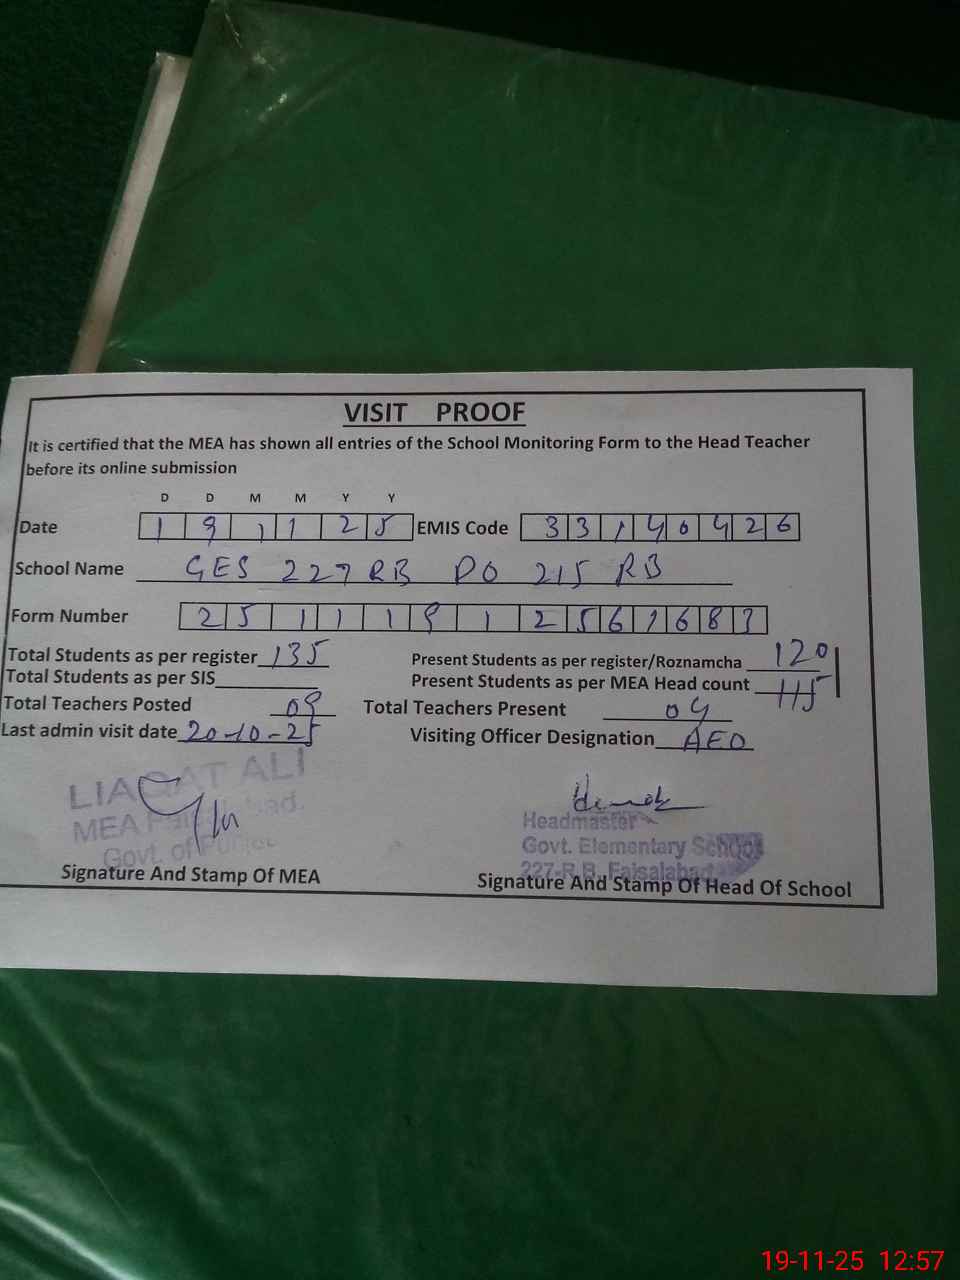 VISIT PROOF
It is certified that the MEA has shown all entries of the School Monitoring Form to the Head Teacher
before its online submission
D D M M Y Y
Date 1 9 1 1 2 5 EMIS Code 3 3 1 4 0 4 2 6
School Name GES 227 RB PO 215 RB
Form Number 2 5 1 1 1 9 1 2 5 6 1 6 8 3
Total Students as per register 135 Present Students as per register/Roznamcha 120
Total Students as per SIS Present Students as per MEA Head count 115
Total Teachers Posted 09 Total Teachers Present 09
Last admin visit date 20-10-25 Visiting Officer Designation AEO
LIAQAT ALI
MEA
Govt. of
Headmaster
Govt. Elementary School
227-R.B., Faisalabad
Signature And Stamp Of MEA Signature And Stamp Of Head Of School
19-11-25 12:57